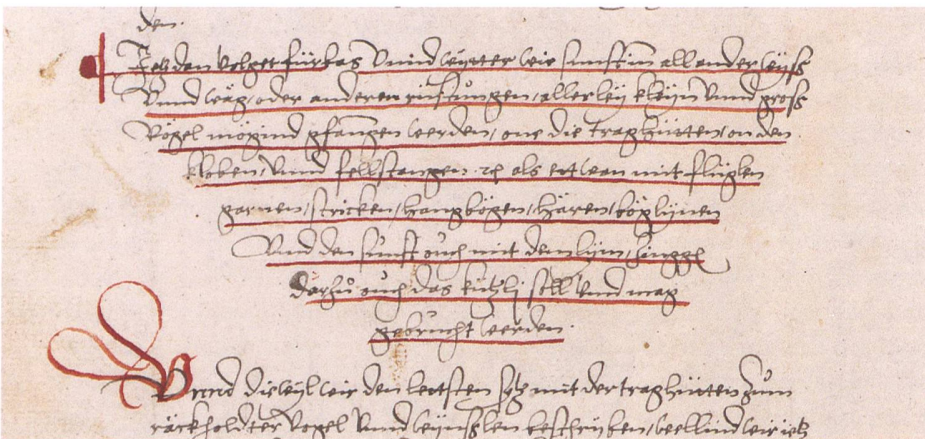 den.
Jetz dan volget fürbas Vnnd wÿtter wie sunst in all ander wÿss
Vnnd wäg, oder anderen rüstungen, allerleÿ kleÿn Vnnd gross
Vögel mögind gfangen werden, one die traghütten, on den
kloben, Vnnd fellstangen als ettwan mit flüglen
garnen, stricken, hangbögen, hären, böglÿnen
Vnd den sunst ouch mit dem lÿm,
darzů ouch das kützlj soll vnd mag
gebrucht werden.
Vnnd diewÿl wir den letsten satz mit der traghütten zum
räckholdter vogel Vnnd beschryben, wellind wir ietz